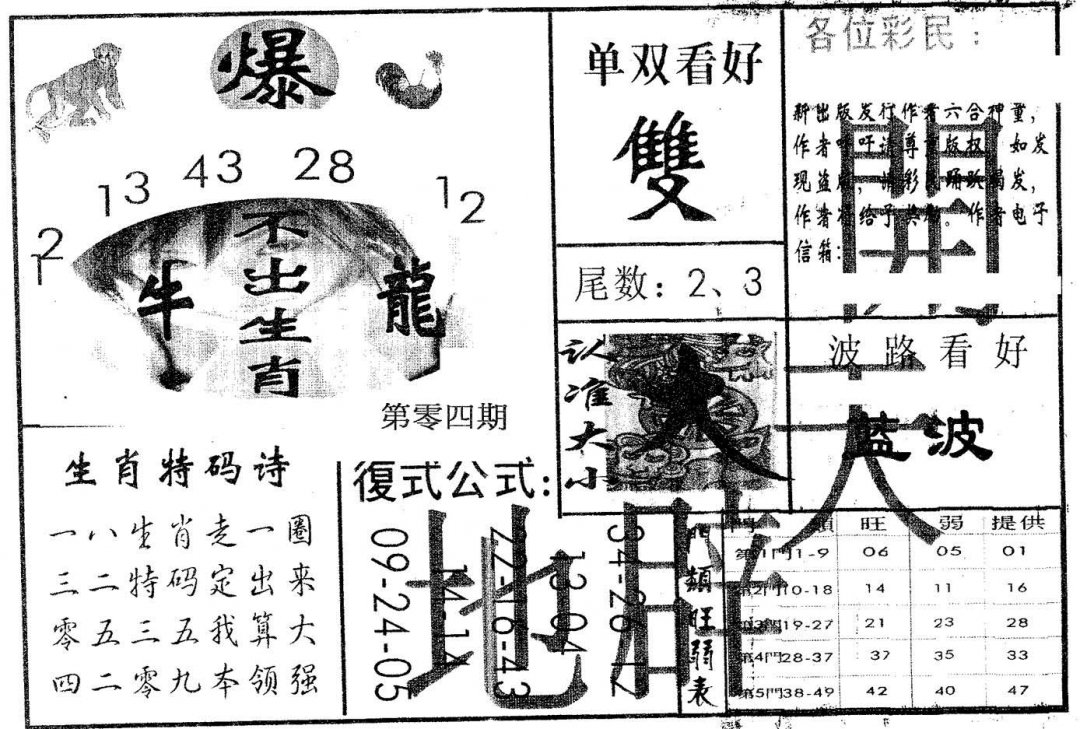 爆
13 43 28 12
12
不出生肖
牛 龍
第零四期
单双看好
雙
尾数：2、3
各位彩民：
新出版发行作者六合神童，
作者呼吁请尊重版权 如发
现盗版，
作者 给予 作者电子
信箱：
认准大小
大
波路看好
蓝波
生肖特码诗
一八生肖走一圈
三二特码定出来
零五三五我算大
四二零九本领强
復式公式：
09-24-05
14-14
22-16-43
13-04
34-26-12
門類旺弱表
門類 旺 弱 提供
第1門1-9 06 05 01
第2門10-18 14 11 16
第3門19-27 21 23 28
第4門28-37 37 35 33
第5門38-49 42 40 47